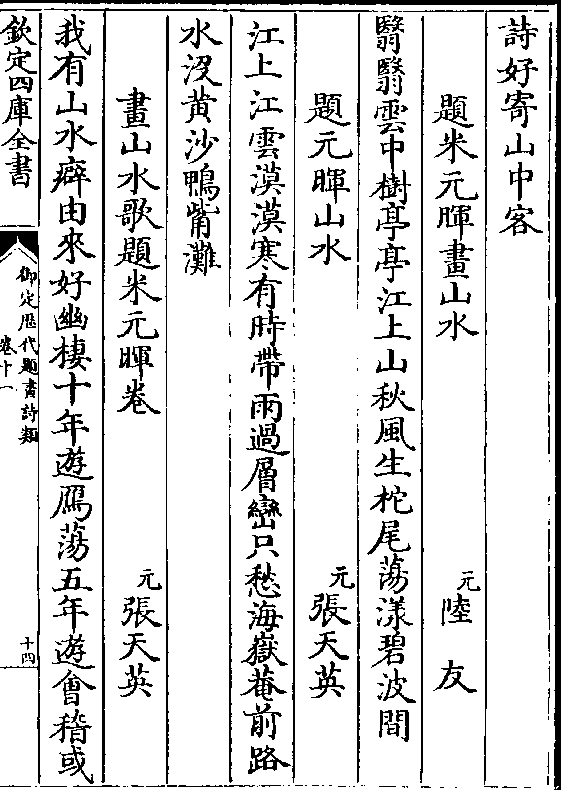 詩好寄山中客
題米元暉畫山水
元陸友
翳翳雲中樹亭亭江上山秋風生柁尾蕩漾碧波間
題元暉山水
元張天英
江上江雲漠漠寒有時帶雨過層巒只愁海嶽菴前路
水沒黄沙鴨觜灘
畫山水歌題米元暉卷
元張天英
我有山水癖由來好幽棲十年遊鴈蕩五年遊會稽或
欽定四庫全書
御定歴代題畫詩類
卷十一
十四